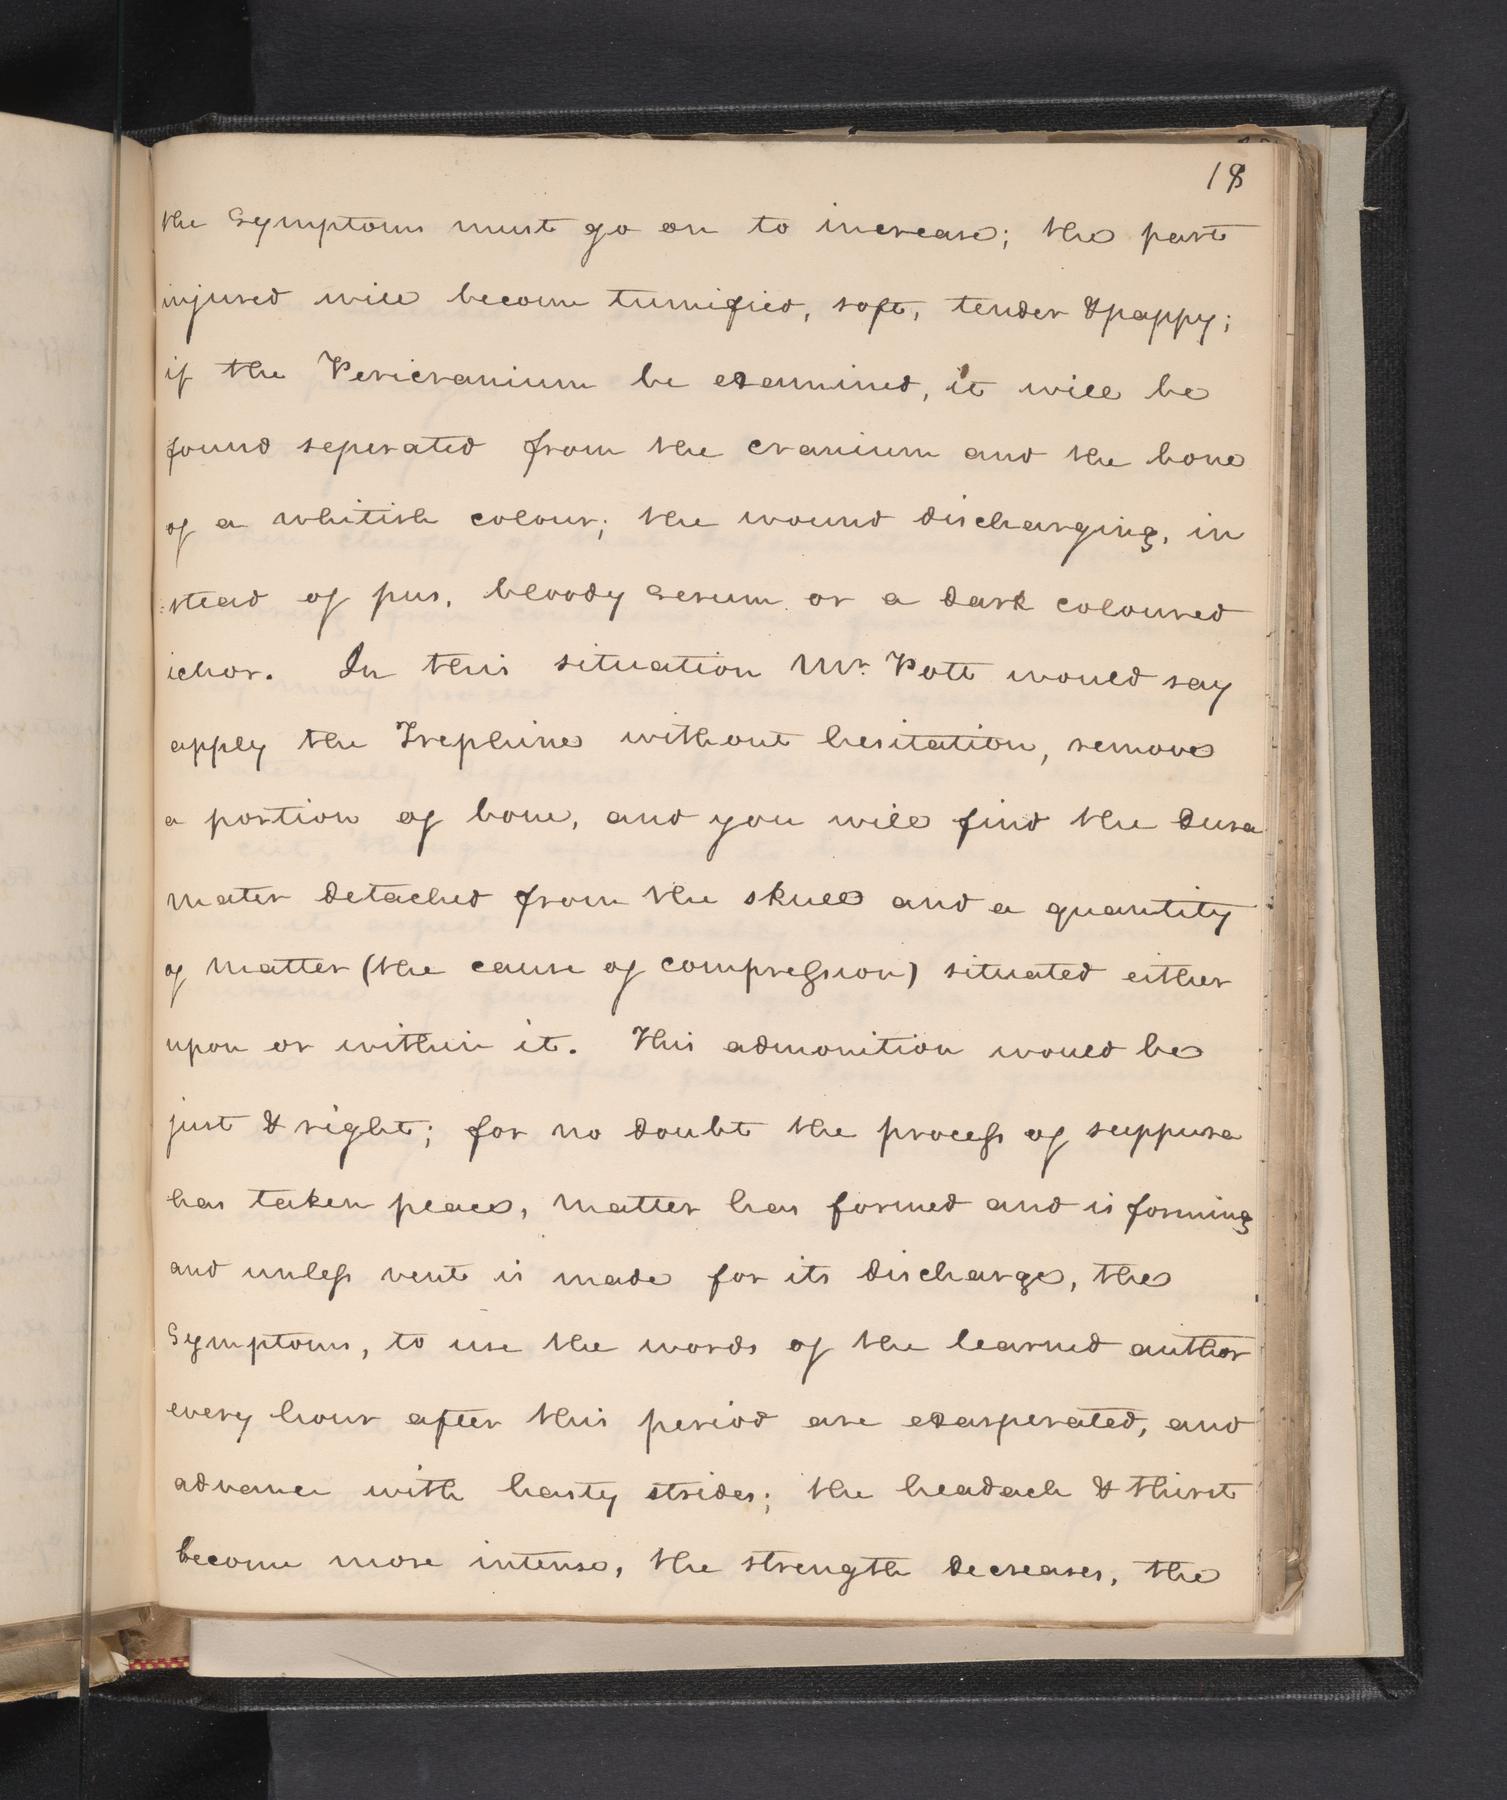 18
the Symptoms must go on to increase; the part
injured will become tumified, soft, tender & pappy;
if the Pericranium be examined, it will be
found seperated from the cranium and the bone
of a whitish colour; the wound discharging, in
:stead of pus, bloody serum or a dark coloured
ichor. In this situation Mr. Pott would say
apply the Trephine without hesitation, remove
a portion of bone, and you will find the dura
mater detached from the skull and a quantity
of matter (the cause of compression) situated either
upon or within it. This admonition would be
just & right; for no doubt the process of suppura
has taken place, matter has formed and is forming
and unless vent is made for its discharge, the
Symptoms, to use the words of the learned author
every hour after this period are exasperated, and
advance with hasty strides; the headach & thirst
become more intense, the strength decreases, the